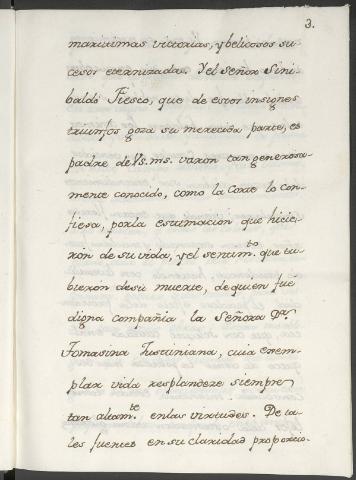 3.
maritimas victorias, y belicosos su-
cesos eternizada. Y el Señor Sini-
baldo Fiesco, que de estos insignes
triumfos goza su merecida parte, es
padre de Vs. ms. varon tan generosa-
mente conocido, como la Corte lo con-
fiesa, por la estimacion que hicie-
ron de su vida, y el sentim.to que tu-
bieron de su muerte, de quien fué
digna compañia la Señora D.a
Tomasina Iustiniana, cuia exem-
plar vida resplandeze siempre
tan altam.te en las virtudes. De ta-
les fuentes en su claridad proporcio-